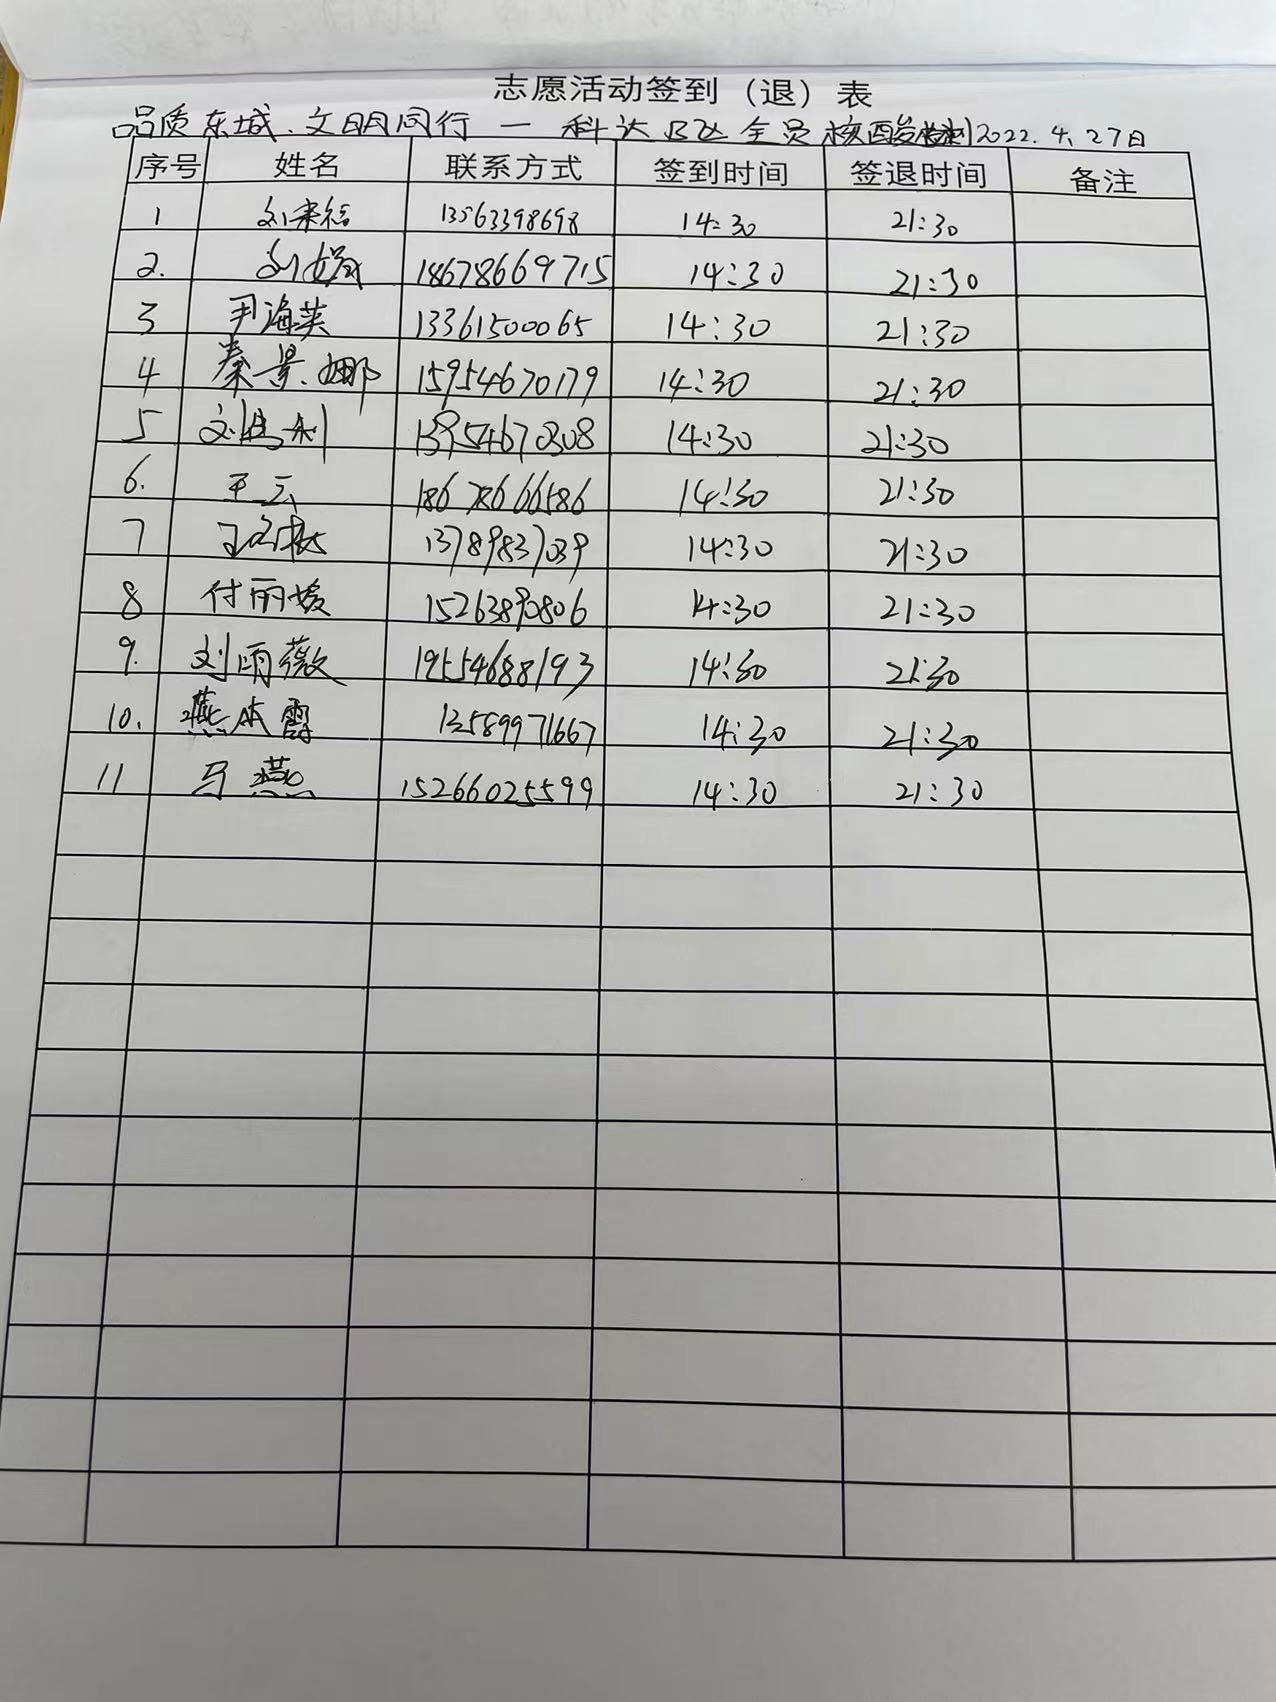 志愿活动签到（退）表
品质东城、文明同行 — 科达 全员核酸检测 2022.4.27日
序号 姓名 联系方式 签到时间 签退时间 备注
1 刘 13563398698 14:30 21:30
2. 刘娥 18678669715 14:30 21:30
3 尹海英 13361500065 14:30 21:30
4 秦景娜 15954670179 14:30 21:30
5 刘 14:30 21:30
6. 王云 18678666586 14:30 21:30
7 王 13789837039 14:30 21:30
8 付丽媛 15263890806 14:30 21:30
9. 刘雨薇 19554688193 14:30 21:30
10. 燕 霞 13589971667 14:30 21:30
11 马燕 15266025599 14:30 21:30